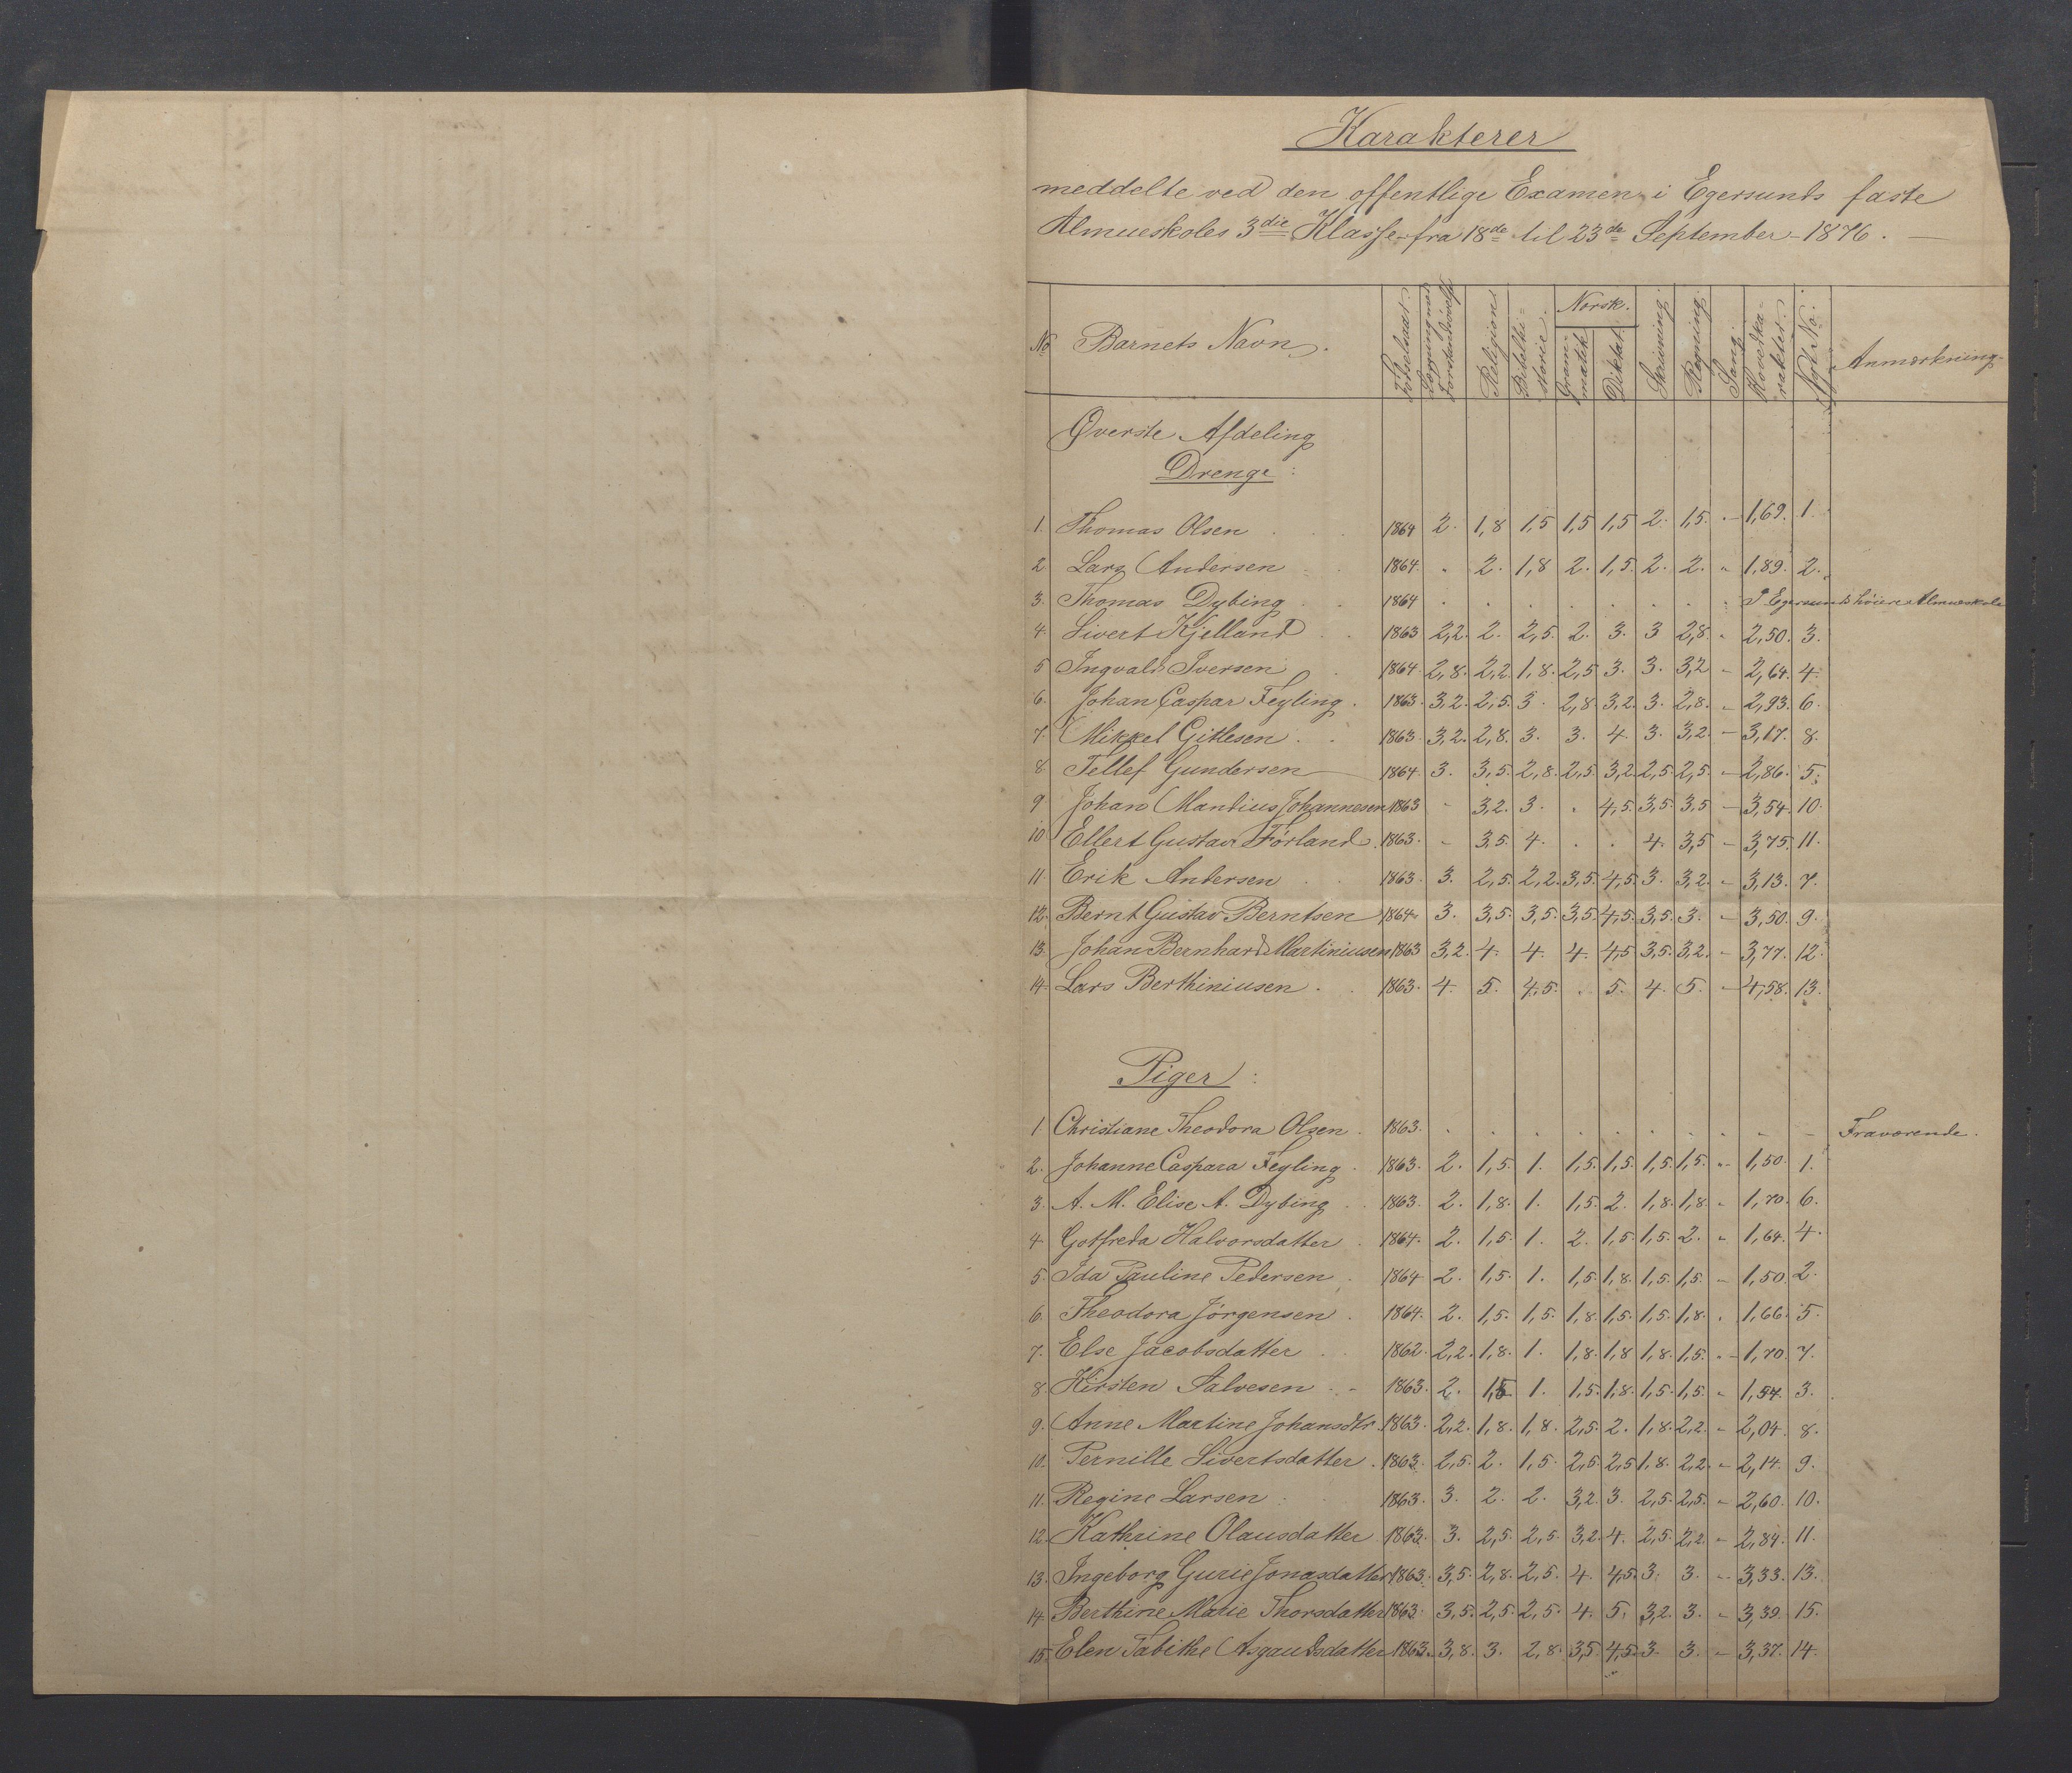 Karakterer
meddelte ved den offentlige Examen i Egersunds faste
Almueskoles 3die Klasse fra 18de til 23de September 1876.
No Barnets Navn. Fødselsaar. Religion Bibelhi-storie. Norsk. Gram-matik Diktat. Skrivning. Regning. Sang. Hovedka-rakter. Nyt No. Anmærkning
Øverste Afdeling
Drenge:
1. Thomas Olsen 1864 2. 1,8 1,5 1,5 1,5 2. 1,5. - 1,69. 1.
2. Lars Andersen 1864. . 2. 1,8 2. 1,5. 2. 2. - 1,89. 2.
3. Thomas Dybing 1864 . . . . . . . . I Egersunds høiere Almueskole
4. Sivert Kjelland 1863 2,2. 2. 2,5. 2. 3. 3 2,8. - 2,50. 3.
5 Ingvald Iversen 1864. 2,8. 2,2 1,8. 2,5 3. 3. 3,2 - 2,64. 4.
6. Johan Caspar Feyling. 1863. 3,2. 2,5. 3. 2,8 3,2. 3. 2,8. - 2,93. 6.
7. Mikkel Gitlesen 1863. 3,2. 2,8. 3. 3. 4. 3. 3,2. - 3,17. 8.
8. Tellef Gundersen 1864. 3. 3,5. 2,8. 2,5. 3,2. 2,5. 2,5. - 2,86. 5.
9. Johan Mandius Johannesen 1863 - 3,2. 3. . 4,5. 3,5. 3,5 - 3,54. 10.
10. Ellert Gustav Førland. 1863. - 3,5. 4. . . 4. 3,5 - 3,75. 11.
11. Erik Andersen 1863. 3. 2,5. 2,2. 3,5. 4,5. 3. 3,2. - 3,13. 7.
12. Bernt Gustav Berntsen 1864. 3. 3,5. 3,5. 3,5. 4,5. 3,5. 3. - 3,50. 9.
13. Johan Bernhard Martiniusen 1863 3,2. 4. 4. 4. 4,5 3,5. 3,2. - 3,77. 12.
14. Lars Berthiniusen 1863. 4. 5. 4,5. . 5. 4. 5. - 4,58. 13.
Piger:
1. Christiane Theodora Olsen. 1863. . . . . . . . . - - Fraværende.
2. Johanne Caspara Feyling. 1863. 2. 1,5. 1. 1,5. 1,5. 1,5. 1,5. - 1,50. 1.
3. A. M. Elise A. Dybing 1863. 2. 1,8. 1. 1,5. 2. 1,8. 1,8. - 1,70. 6.
4. Gotfreda Halvorsdatter 1864. 2. 1,5. 1. 2. 1,5. 1,5. 2. - 1,64. 4.
5. Ida Pauline Pedersen. 1864. 2. 1,5. 1. 1,5. 1,8. 1,5. 1,5. - 1,50. 2.
6. Theodora Jørgensen 1864. 2. 1,5. 1,5. 1,8. 1,5. 1,5. 1,8. . 1,66. 5.
7. Else Jacobsdatter 1862. 2,2. 1,8. 1. 1,8. 1,8 1,8. 1,5. - 1,70. 7.
8. Kirsten Salvesen 1863. 2. 1,5 1. 1,5. 1,8. 1,5. 1,5. - 1,54. 3.
9. Anne Martine Johansdtr. 1863. 2,2. 1,8. 1,8. 2,5. 2. 1,8. 2,2. - 2,04. 8.
10. Pernille Sivertsdatter. 1863. 2,5. 2. 1,5. 2,5. 2,5 1,8. 2,2. - 2,14. 9.
11. Regine Larsen 1863. 3. 2. 2. 3,2. 3. 2,5. 2,5. - 2,60. 10.
12. Kathrine Olausdatter 1863. 3. 2,5. 2,5. 3,2. 4. 2,5. 2,2. - 2,84. 11.
13. Ingeborg Gurie Jonasdatter 1863. 3,5. 2,8. 2,5. 4. 4,5. 3. 3. - 3,33. 13.
14. Berthine Marie Thorsdatter 1863. 3,5. 2,5. 2,5. 4. 5. 3,2. 3. - 3,39. 15.
15. Elen Tabithe Asgaudsdatter 1863. 3,8. 3. 2,8. 3,5. 4,5. 3. 3. - 3,37. 14.